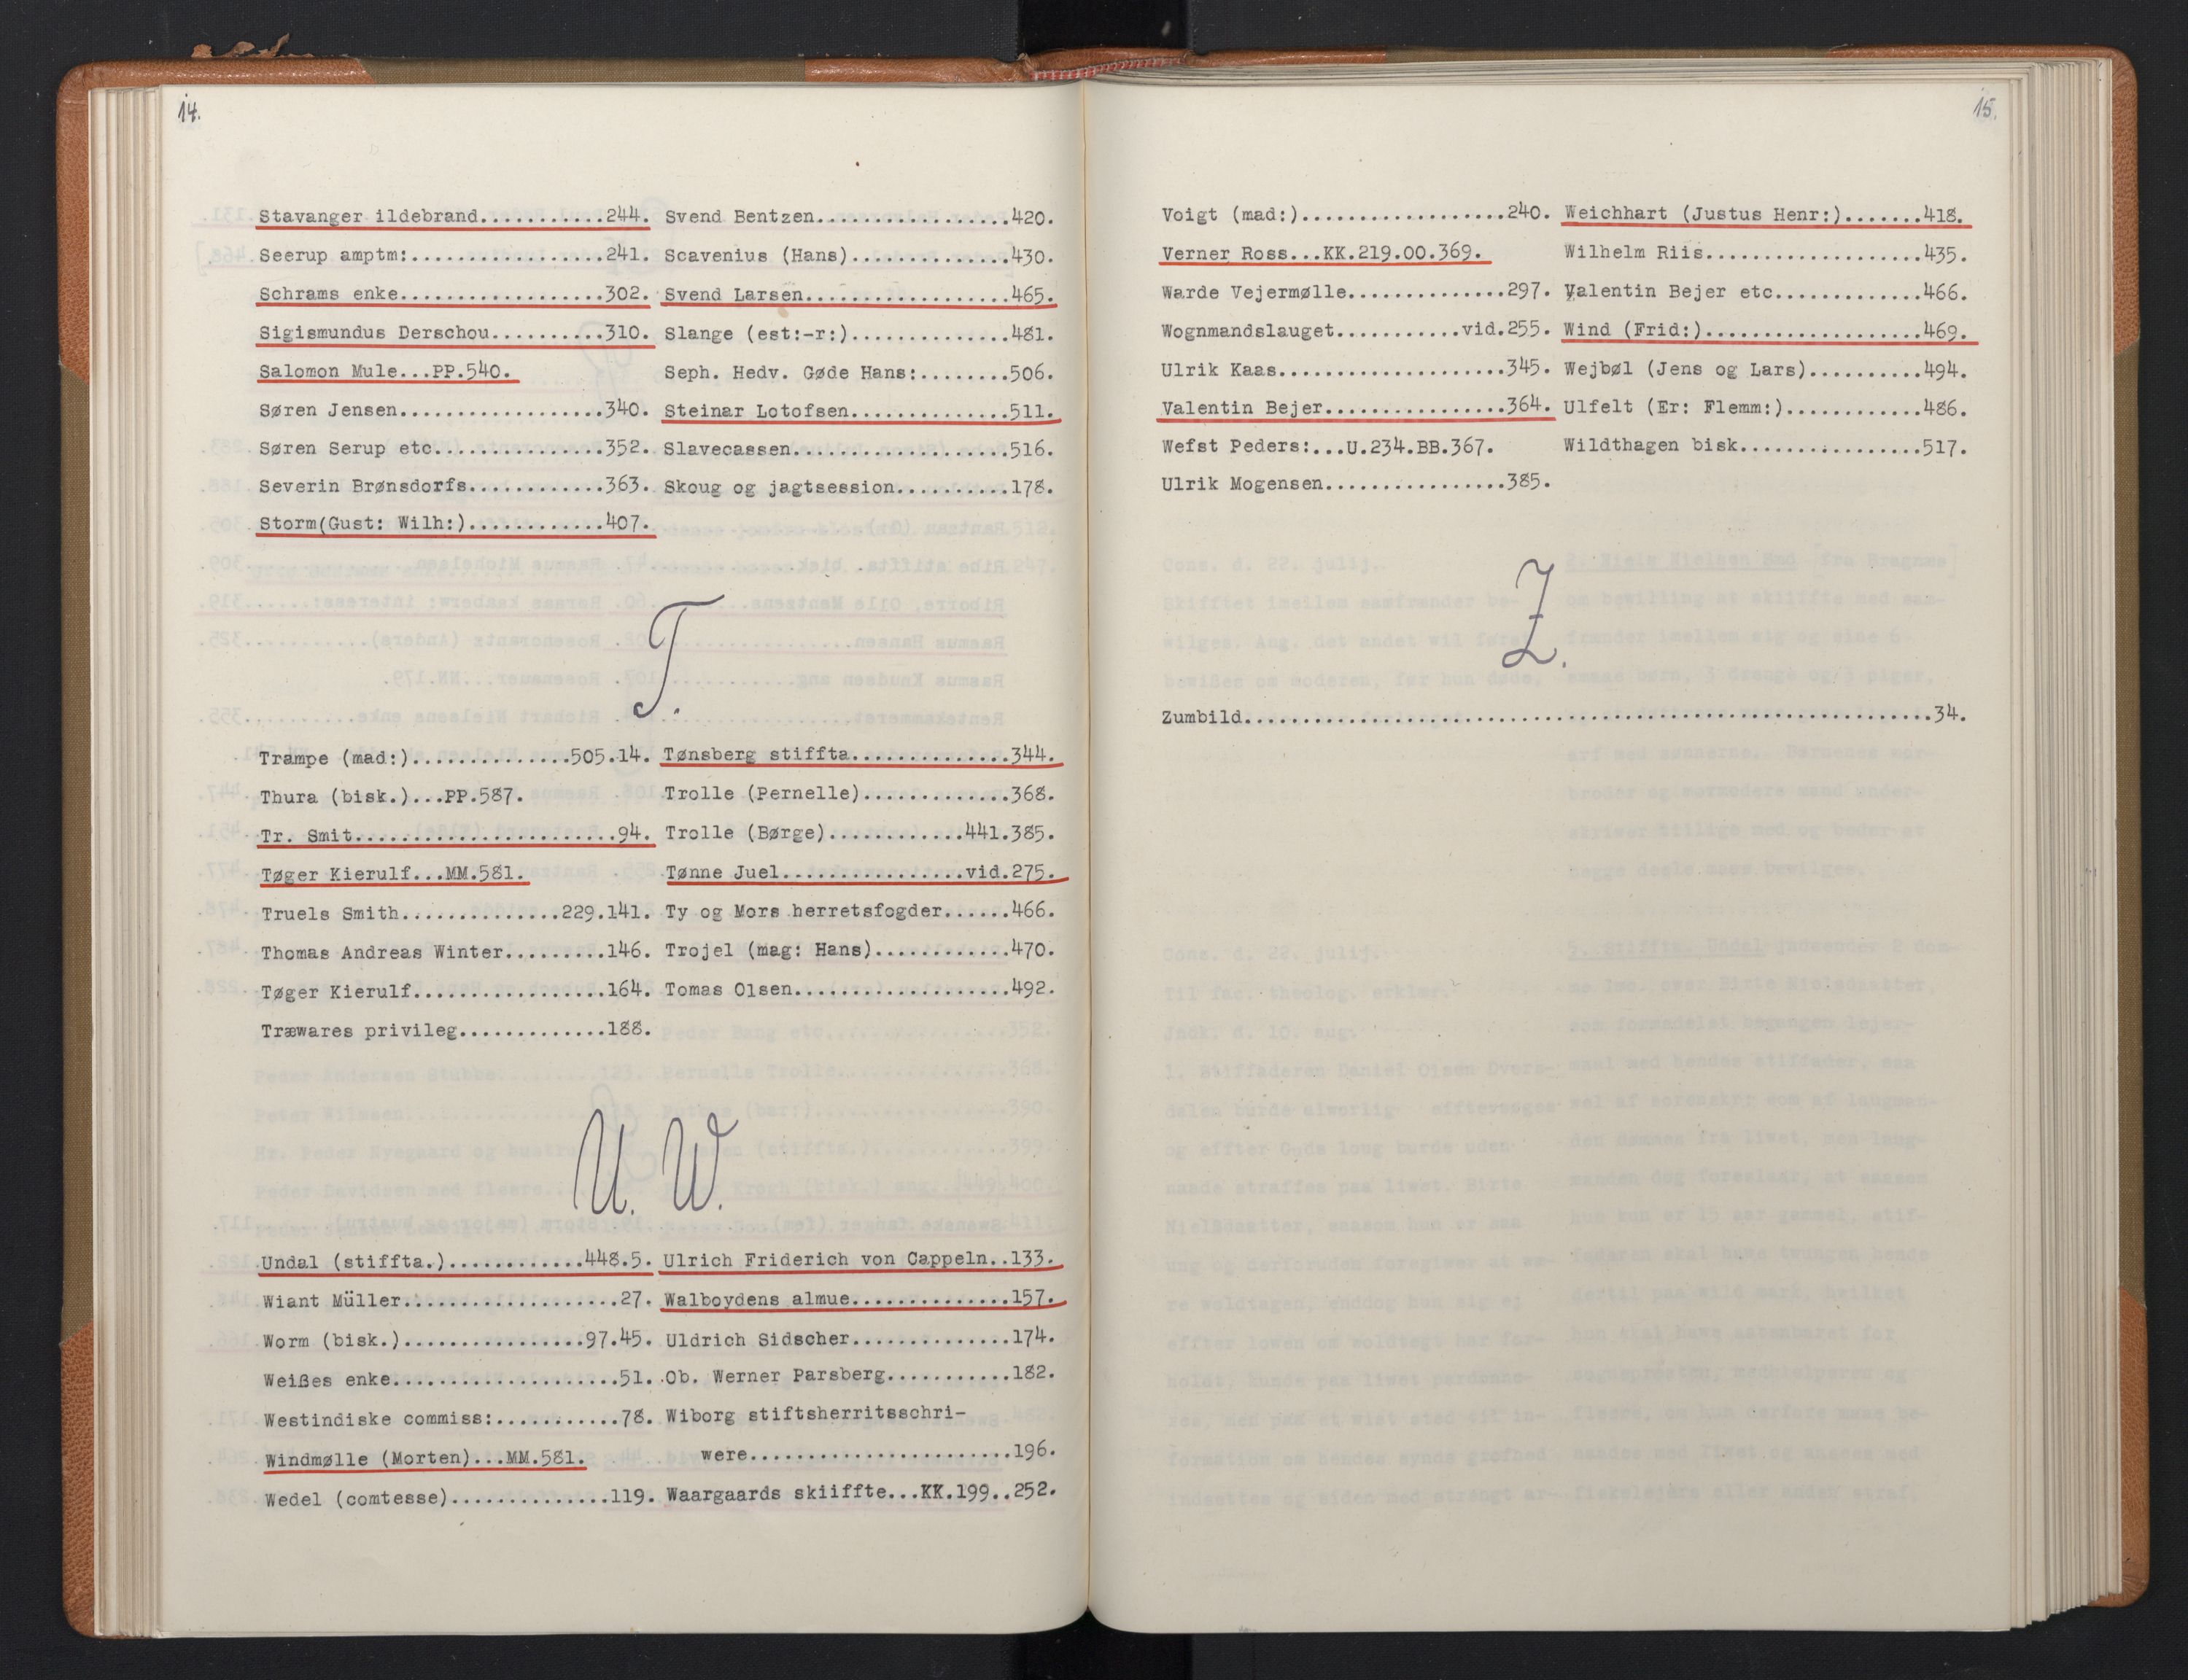 14.
Stavanger ildebrand...........244.
Seerup amptm:.................241.
Schrams enke..................302.
Sigismundus Derschou..........310.
Salomon Mule...PP.540.
Søren Jensen..................340.
Søren Serup etc...............352.
Severin Brønsdorfs............363.
Storm(Gust: Wilh:)............407.
Svend Bentzen.................420.
Scavenius (Hans)..............430.
Svend Larsen..................465.
Slange (est:-r:)..............481.
Seph. Hedv. Gøde Hans:........506.
Steinar Lotofsen..............511.
Slavecassen...................516.
Skoug og jagtsession..........178.
T.
Trampe (mad:)..............505.14.
Thura (bisk.)...PP.587.
Tr. Smit.......................94.
Tøger Kierulf...MM.581.
Truels Smith..............229.141.
Thomas Andreas Winter.........146.
Tøger Kierulf.................164.
Træwares privileg.............188.
Tønsberg stiffta..............344.
Trolle (Pernelle).............368.
Trolle (Børge)............441.385.
Tønne Juel................vid.275.
Ty og Mors herretsfogder......466.
Trojel (mag: Hans)............470.
Tomas Olsen...................492.
U. W.
Undal (stiffta.)............448.5.
Wiant Müller...................27.
Worm (bisk.)................97.45.
Weißes enke....................51.
Westindiske commiss:...........78.
Windmølle (Morten)...MM.581.
Wedel (comtesse)..............119.
Ulrich Friderich von Cappeln..133.
Walboydens almue..............157.
Uldrich Sidscher..............174.
Ob. Werner Parsberg...........182.
Wiborg stiftsherritsschri-
were.......................196.
Waargaards skiiffte...KK.199..252.
15.
Voigt (mad:)..................240.
Verner Ross...KK.219.OO.369.
Warde Vejermølle..............297.
Wognmandslauget...........vid.255.
Ulrik Kaas....................345.
Valentin Bejer................364.
Wefst Peders:...U.234.BB.367.
Ulrik Mogensen................385.
Weichhart (Justus Henr:).......418.
Wilhelm Riis...................435.
Valentin Bejer etc.............466.
Wind (Frid:)...................469.
Wejbøl (Jens og Lars)..........494.
Ulfelt (Er: Flemm:)............486.
Wildthagen bisk................517.
Z.
Zumbild.............................................................34.